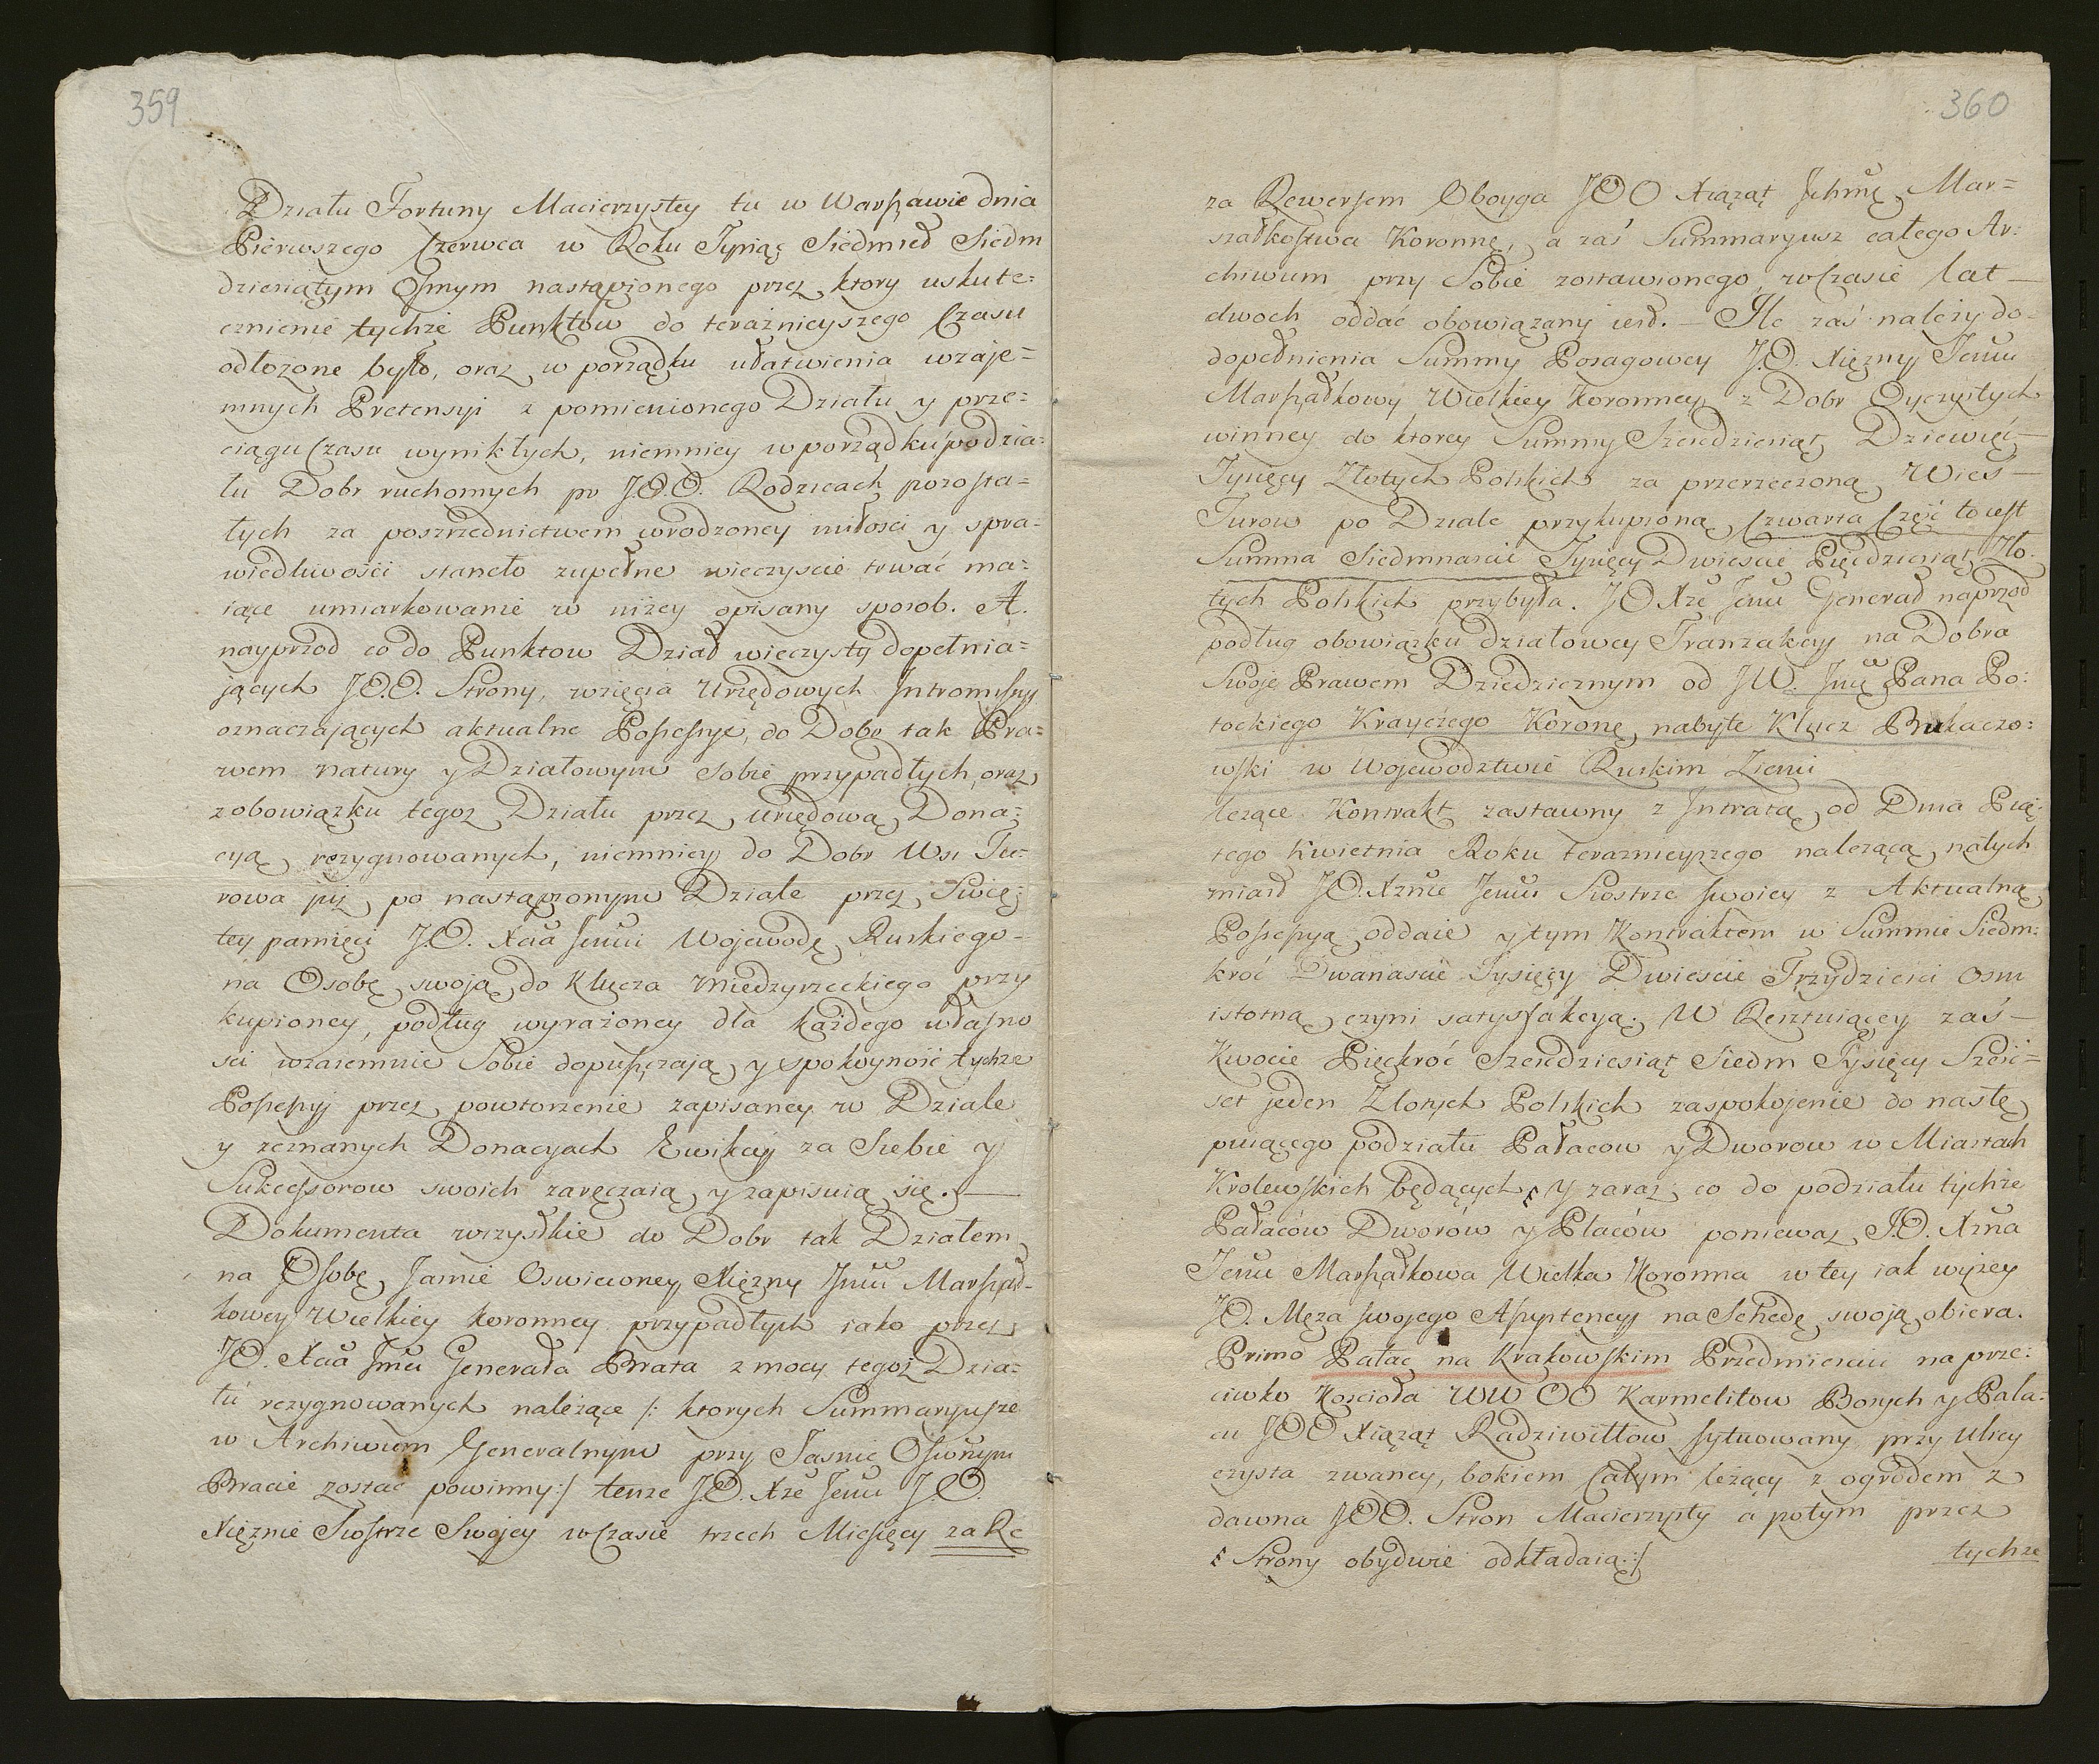 359
Działu Fortuny Macierzystey tu w Warszawie dnia
Pierwszego Czerwca w Roku Tysiąc Siedmset Siedm
dziesiątym Osmym nastąpionego przez ktory uskute=
cznienie tychże Punktow do teraźnieyszego Czasu
odłożone było, oraz w porządku ułatwienia wzaje=
mnych Pretensyi z pomienionego Działu y prze=
ciągu Czasu wynikłych, niemniey w porządku podzia=
łu Dobr ruchomych po J.O.O. Rodzicach pozosta=
łych za poszrzednictwem wrodzoney miłosci y spra=
wiedliwości staneło zupełne wieczyscie trwać ma=
iące umiarkowanie w niżey opisany sposob. A.
nayprzod co do Punktow Dział wieczysty dopełnia=
jących J.O.O. Strony, wzięcia Urzędowych Intromissyj
oznaczających aktualne Possessye, do Dobr tak Pra=
wem natury y Działowym Sobie przypadłych, oraz
z obowiązku tegoż Działu przez urzędową Dona=
cyą rezygnowanych, niemniey do Dobr Wsi Tu=
rowa już po nastąpionym Dziale przez Swię=
tey pamięci J.O. Xcia Jmci Wojewodę Ruskiego
na Osobę swoją do Klucza Międzyrzeckiego przy
kupioney, podług wyrażoney dla każdego własno
sci wzaiemnie Sobie dopuszczają y spokoyność tychże
Possessyj przez powtorzenie zapisaney w Dziale
y zeznanych Donacyach Ewikcyj za Siebie y
Sukcessorow swoich zaręczaią y zapisuią się.
Dokumenta wszystkie do Dobr tak Działem
na Osobę Jasnie Oswieconey Xiężny Jmci Marszał=
kowey Wielkiey Koronney przypadłych iako przez
J.O. Xcia Jmci Generała Brata z mocy tegoż Dzia=
łu rezygnowanych należące /: ktorych Summaryusze
w Archiwum Generalnym przy Jasnie Oswonym
Bracie zostać powinny :/ tenże J.O. Xże Jmci J.O.
Xiężnie Siostrze Swojey w Czasie trzech Miesięcy za Re
360
za Rewersem Oboyga JOO Xiążąt Ichmę Mar=
szałkostwa Koronnę, a zaś Summaryusz całego Ar=
chiwum przy Sobie zostawionego, w Czasie lat
dwoch oddać obowiązany iest. Ile zaś należy do
dopełnienia Summy Posagowey J.O. Xiężnyj Jmci
Marszałkowy Wielkiey Koronney z Dobr Oyczystych
winney do ktorey Summy Szescdziesiąt Dziewięć
Tysięcy Złotych Polskich za przerzeczoną Wieś
Turow po Dziale przykupioną Czwarta Część to iest
Summa Siedmnascie Tysięcy Dwiescie Pięcdziesiąt Zło=
tych Polskich przybyła. JO Xże Jmci Generał naprzod
podług obowiązku działowey Tranzakcyj na Dobra
Swoje Prawem Dziedzicznym od JW. Jmci Pana Po=
tockiego Krayczego Koronę nabyte Klucz Bukaczo=
wski w Wojewodztwie Ruskim Ziemi
leżące Kontrakt zastawny z Intratą od Dnia Pią=
tego Kwietnia Roku teraznieyszego należącą natych
miast J.O. Xżnie Jmci Siostrze swoiey z Aktualną
Possessyą oddaie y tym Kontraktem w Summie Siedm=
kroć Dwanascie Tysięcy Dwiescie Trzydziesci Osm
istotną czyni satysfakcyą. W Resztuiącey zaś
Kwocie Pięckroć Szescdziesiąt Siedm Tysięcy Sześć=
set jeden Złotych Polskich zaspokojenie do nastę
puiącego podziału Pałacow y Dworow w Miastach
Krolewskich będących y zaraz co do podziału tychże
Pałaców Dworów y Placów ponieważ J.O. Xżna
Jmci Marszałkowa Wielka Koronna w tey iak wyżey
JO. Męża swojego Assystencyj na Schedę swoją obiera.
Primo Pałac na Krakowskim Przedmiesciu na prze=
ciwko Kościoła WW OO Karmelitow Bosych y Pała=
cu JOO Xiążąt Radziwiłłow sytuowany przy Ulicy
czysta zwaney, bokiem Całym leżący z ogrodem z
dawna JOO. Stron Macierzysty a potym przez
Strony obydwie odkładaią :/
tychże